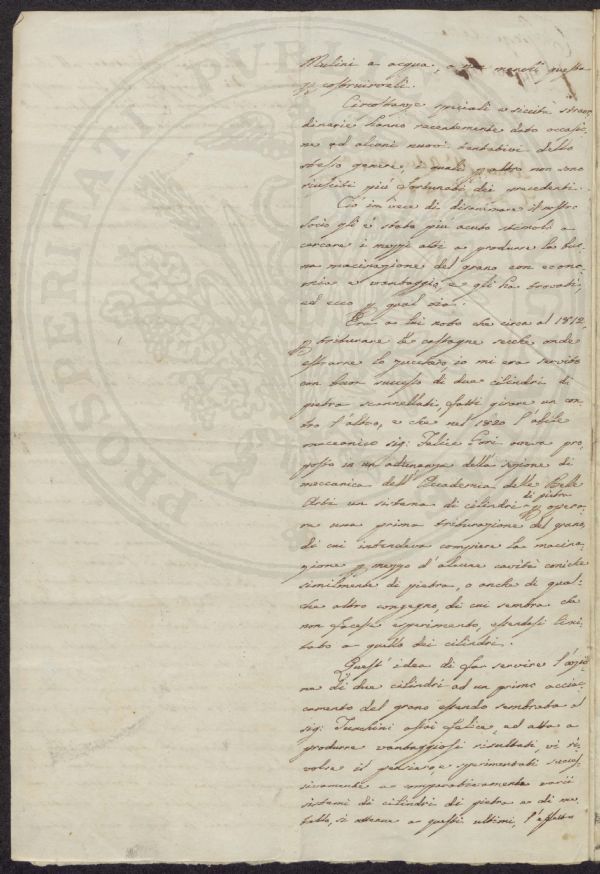 Mulini a acqua, o per menoti questa
p costruirveli.
Circostanze speziali e siccità straor-
dinarie hanno recentemente dato occasio-
ne ad alcuni nuovi tentativi dello
stesso genere, i quali p altro non sono
riusciti più fortunati dei precedenti.
Ciò in vece di disanimare il nostro
Socio gli è stato più acuto stimolo a
cercare i mezzi atti a produrre la buo-
na macinazione del grano con econo-
mia e vantaggio, e gli ha trovati,
ed ecco p qual via.
Era a lui noto che circa al 1812,
p triturare le castagne secche onde
estrarne lo zucchero, io mi era servito
con buon successo di due cilindri di
pietra scannellati, fatti girare un con-
tro l'altro, e che nel 1820 l'abile
meccanico sig: Felice Gori aveva pro-
posto in un'adunanza della sezione di
meccanica dell'Accademia delle Belle
Arti un sistema di cilindri di pietra p opera-
re una prima triturazione del grano,
di cui intendeva compiere la macina-
zione p mezzo d'alcune cavità coniche
similmente di pietra, o anche di qual-
che altro congegno, di cui sembra che
non facesse esperimento, essendosi limi-
tato a quello dei cilindri.
Quest'idea di far servire l'azio-
ne di due cilindri ad un primo acciac-
camento del grano essendo sembrata al
sig: Turchini assai felice, ed atta a
produrre vantaggiosi risultati, vi ri-
volse il pensiero, e sperimentati succes-
sivamente e comparativamente varii
sistemi di cilindri di pietra e di me-
tallo, si attenne a questi ultimi, l'effetto
PROSPERITATI PUBLICAE